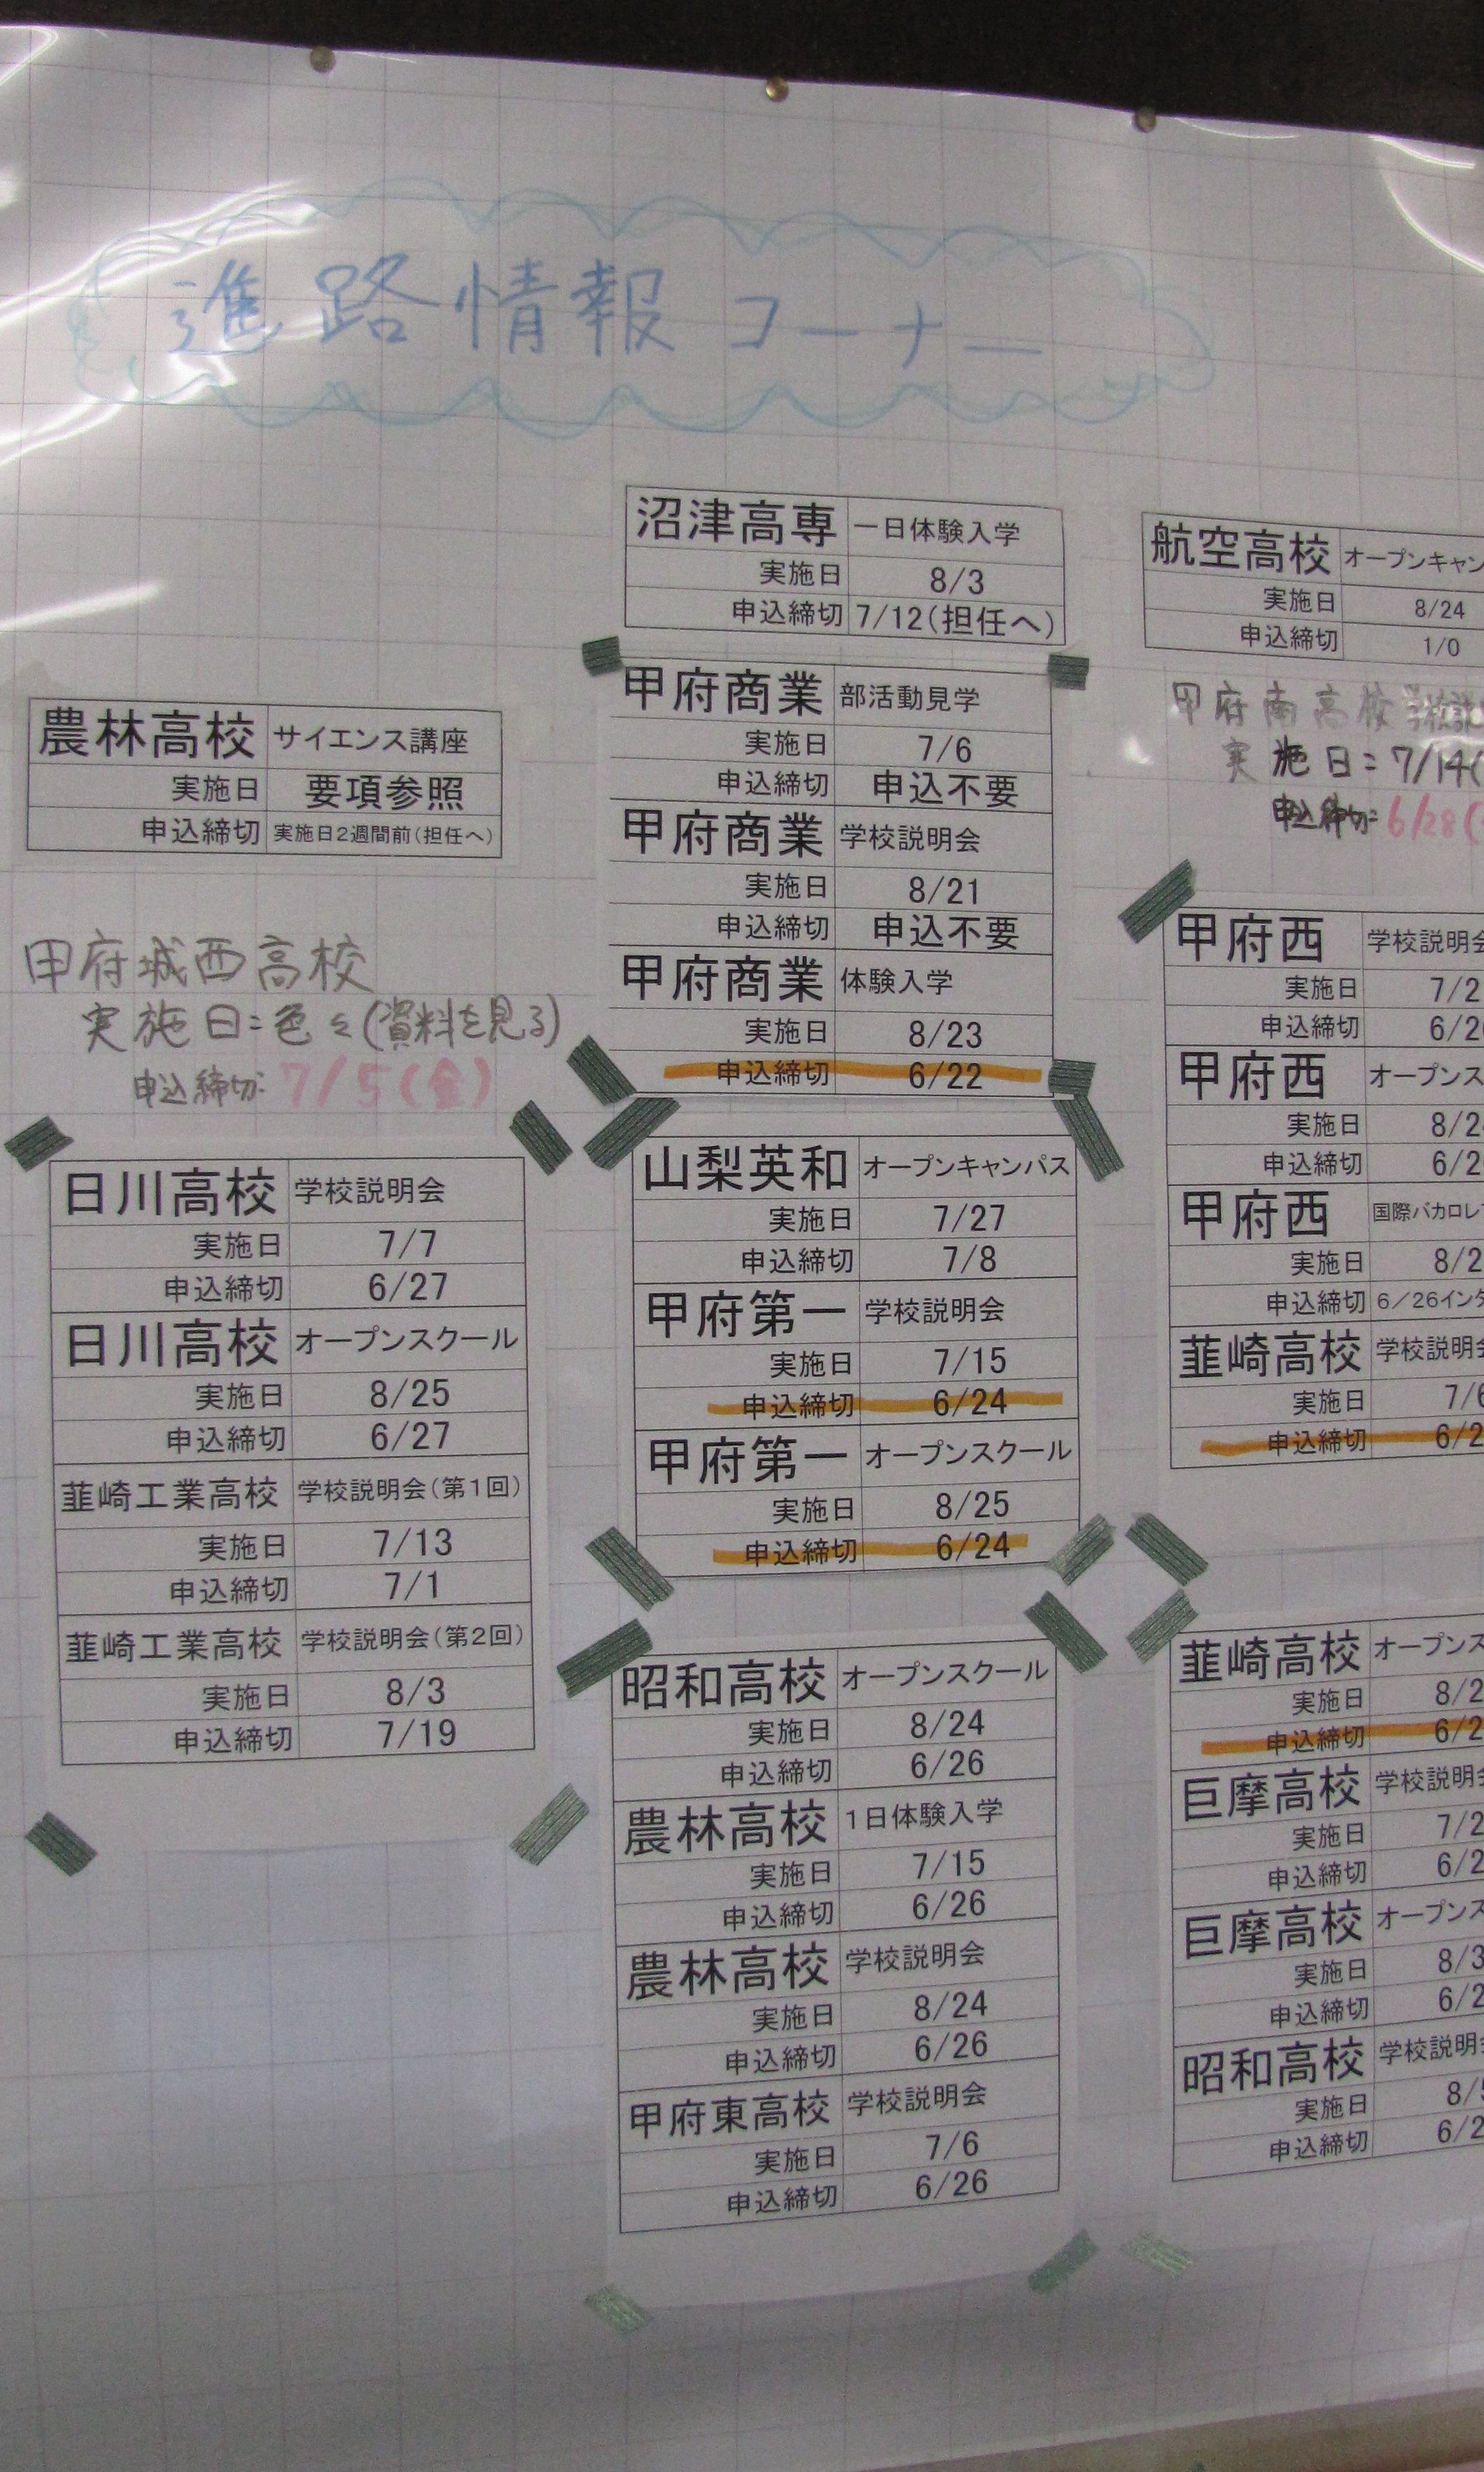 進路情報コーナー
農林高校 サイエンス講座
実施日 要項参照
申込締切 実施日2週間前(担任へ)
甲府城西高校
実施日=色々(資料を見る)
申込締切: 7/5(金)
日川高校 学校説明会
実施日 7/7
申込締切 6/27
日川高校 オープンスクール
実施日 8/25
申込締切 6/27
韮崎工業高校 学校説明会(第1回)
実施日 7/13
申込締切 7/1
韮崎工業高校 学校説明会(第2回)
実施日 8/3
申込締切 7/19
沼津高専 一日体験入学
実施日 8/3
申込締切 7/12(担任へ)
甲府商業 部活動見学
実施日 7/6
申込締切 申込不要
甲府商業 学校説明会
実施日 8/21
申込締切 申込不要
甲府商業 体験入学
実施日 8/23
申込締切 6/22
山梨英和 オープンキャンパス
実施日 7/27
申込締切 7/8
甲府第一 学校説明会
実施日 7/15
申込締切 6/24
甲府第一 オープンスクール
実施日 8/25
申込締切 6/24
昭和高校 オープンスクール
実施日 8/24
申込締切 6/26
農林高校 1日体験入学
実施日 7/15
申込締切 6/26
農林高校 学校説明会
実施日 8/24
申込締切 6/26
甲府東高校 学校説明会
実施日 7/6
申込締切 6/26
航空高校 オープンキャン
実施日 8/24
申込締切 1/0
甲府南高校 学校説
実施日=7/14(
申込締切=6/28(
甲府西 学校説明会
実施日 7/2
申込締切 6/2
甲府西 オープンス
実施日 8/2
申込締切 6/2
甲府西 国際バカロレ
実施日 8/2
申込締切 6/26イン
韮崎高校 学校説明会
実施日 7/6
申込締切 6/2
韮崎高校 オープンス
実施日 8/2
申込締切 6/2
巨摩高校 学校説明会
実施日 7/2
申込締切 6/2
巨摩高校 オープンス
実施日 8/3
申込締切 6/2
昭和高校 学校説明
実施日 8/
申込締切 6/2